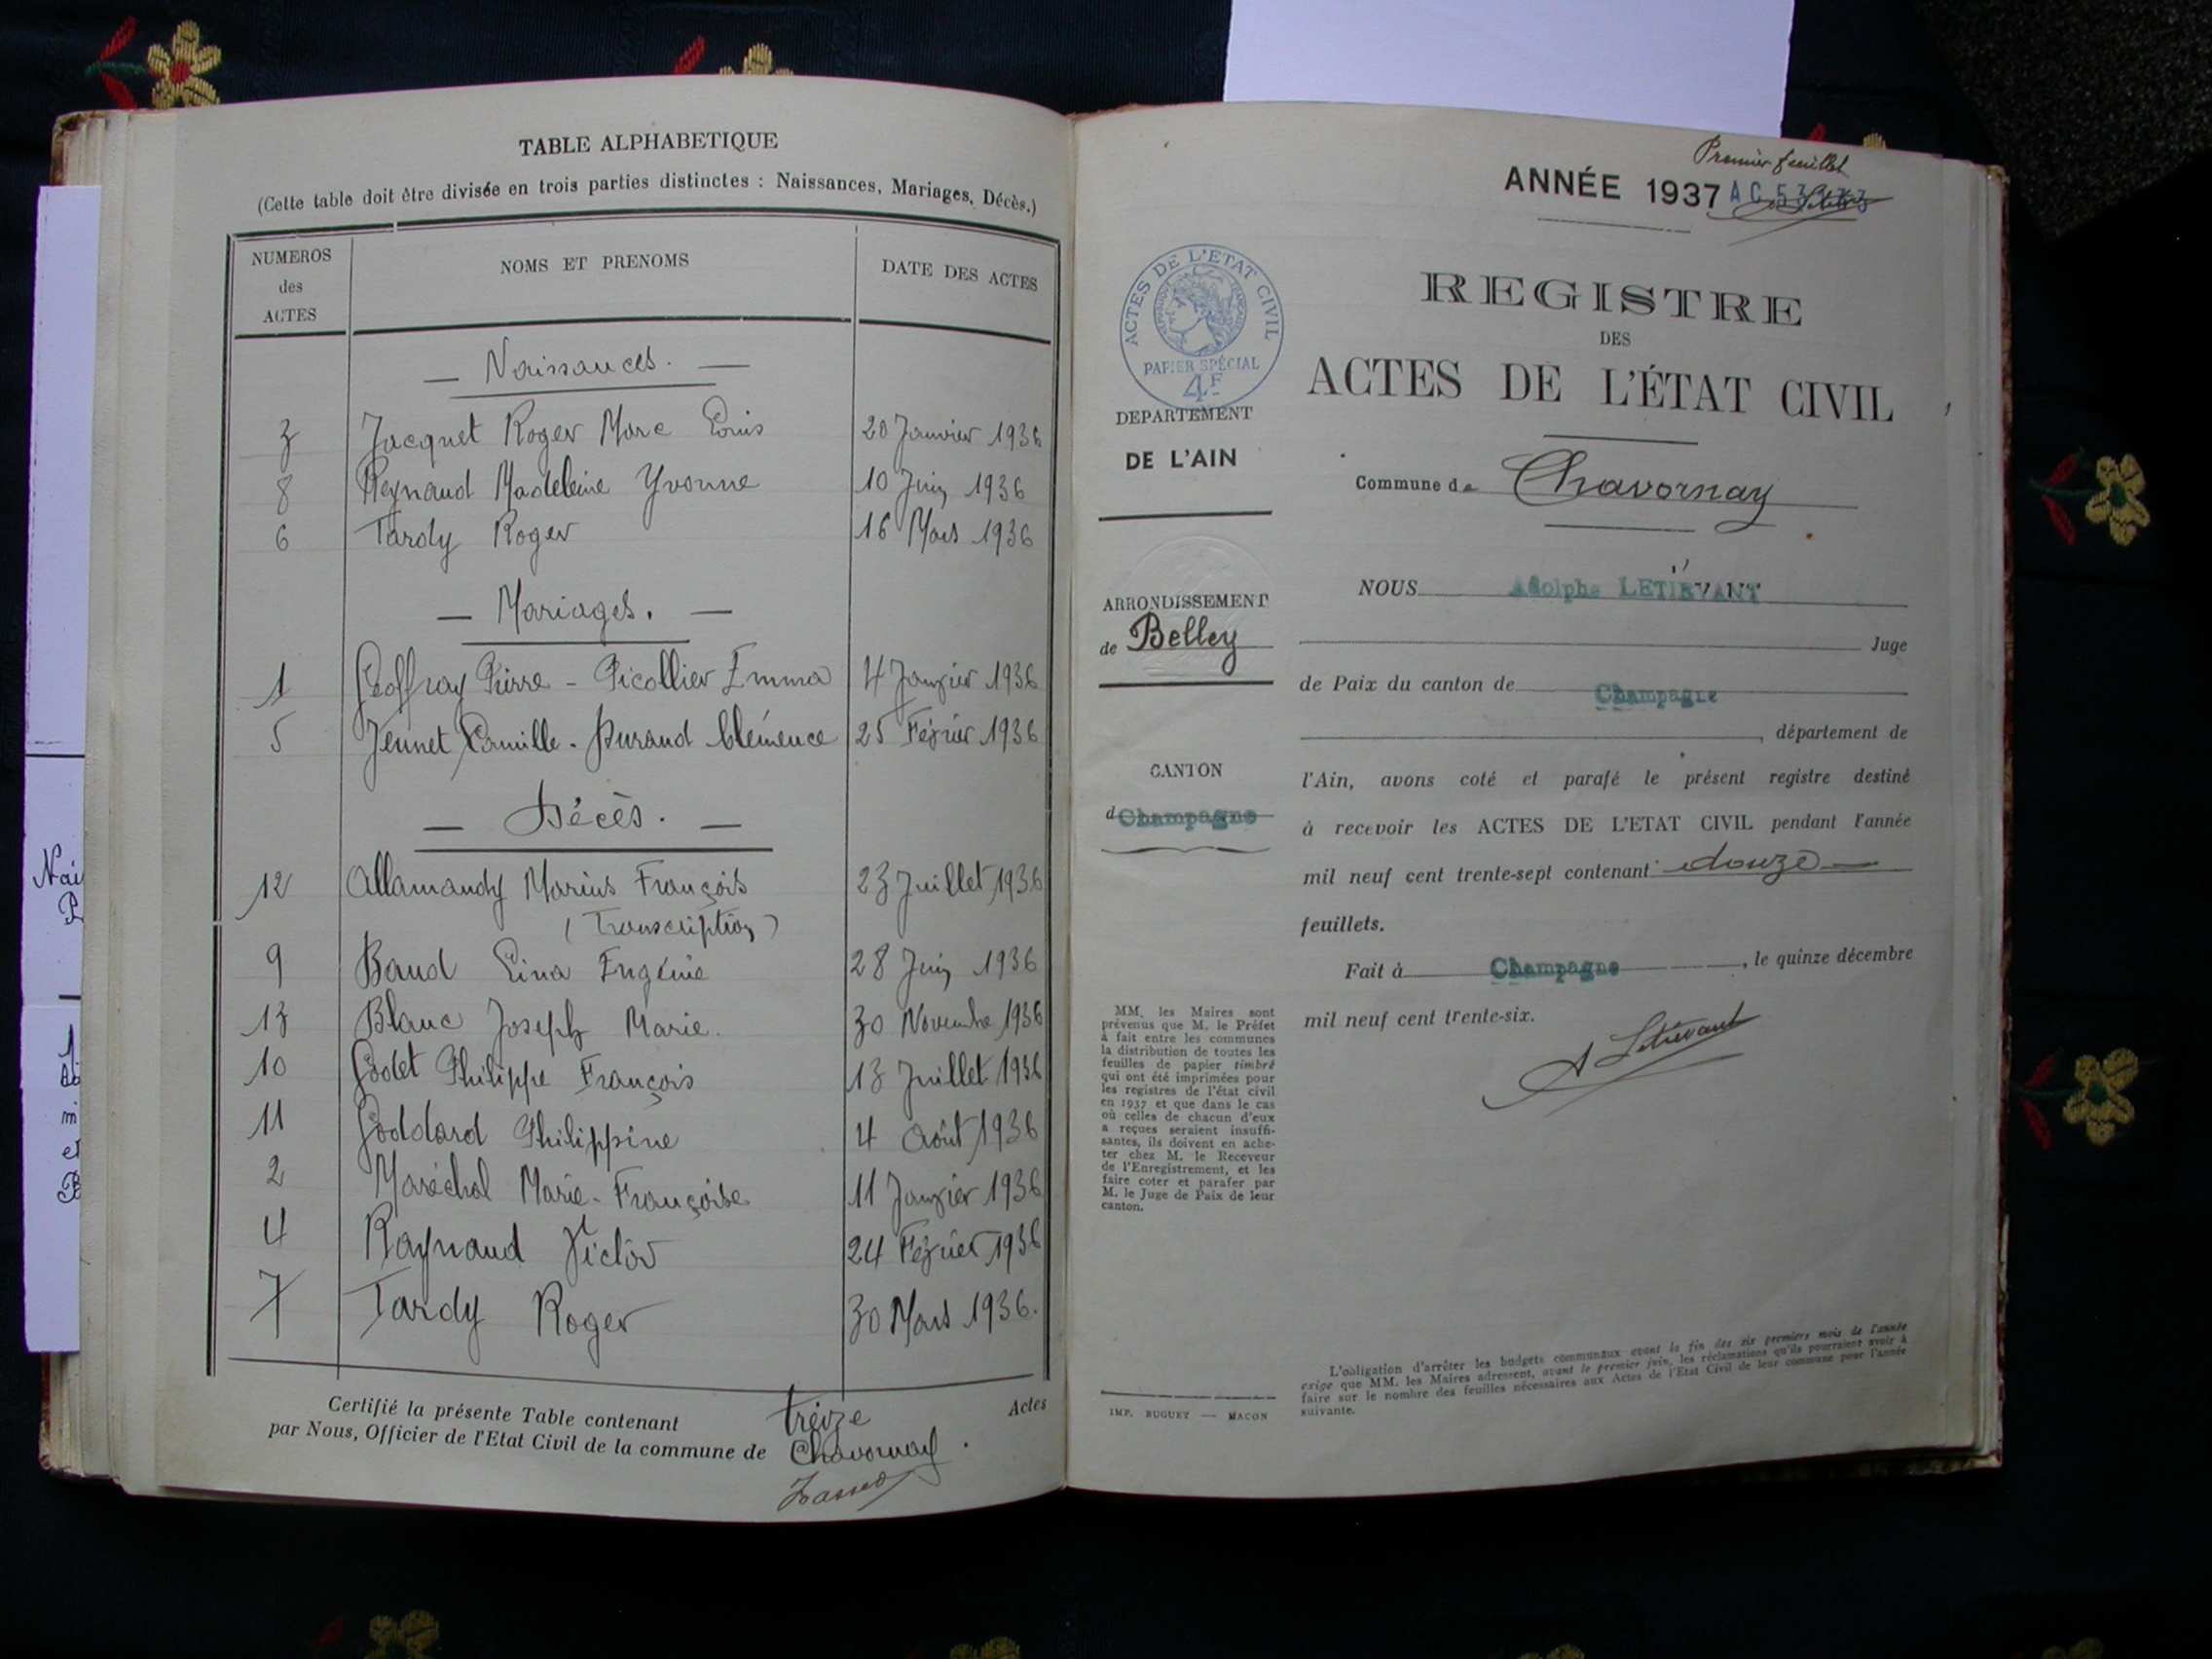 TABLE ALPHABETIQUE
(Cette table doit être divisée en trois parties distinctes : Naissances, Mariages, Décès.)
NUMEROS des ACTES
NOMS ET PRENOMS
DATE DES ACTES
— Naissances. —
3 Jacquet Roger Marc Louis 20 Janvier 1936
8 Reynaud Madeleine Yvonne 10 Juin 1936
6 Tardy Roger 16 Mars 1936
— Mariages. —
1 Geoffray Pierre - Picollier Emma 4 Janvier 1936
5 Jeunet Camille - Durand Clémence 25 Février 1936
— Décès. —
12 Allamandy Marius François 23 Juillet 1936
(Transcription)
9 Baud Lina Eugénie 28 Juin 1936
13 Blanc Joseph Marie. 30 Novembre 1936
10 Godet Philippe François 13 Juillet 1936
11 Goddard Philippine 4 Août 1936
2 Maréchal Marie-Françoise 11 Janvier 1936
4 Raynaud Victor 24 Février 1936
7 Tardy Roger 30 Mars 1936.
Certifié la présente Table contenant treize Actes
par Nous, Officier de l'Etat Civil de la commune de Chavornay.
Premier feuillet
ANNÉE 1937
REGISTRE
DES
ACTES DE L'ÉTAT CIVIL
ACTES DE L'ETAT CIVIL
PAPIER SPÉCIAL
4F
DEPARTEMENT
DE L'AIN
Commune de Chavornay
ARRONDISSEMENT
de Belley
CANTON
d Champagne
NOUS Adolphe LETIEVANT
Juge
de Paix du canton de Champagne
, département de
l'Ain, avons coté et parafé le présent registre destiné
à recevoir les ACTES DE L'ETAT CIVIL pendant l'année
mil neuf cent trente-sept contenant douze
feuillets.
Fait à Champagne, le quinze décembre
mil neuf cent trente-six.
A Letievant
MM. les Maires sont
prévenus que M. le Préfet
à fait entre les communes
la distribution de toutes les
feuilles de papier timbré
qui ont été imprimées pour
les registres de l'état civil
en 1937 et que dans le cas
où celles de chacun d'eux
a reçues seraient insuffi-
santes, ils doivent en ache-
ter chez M. le Receveur
de l'Enregistrement, et les
faire coter et parafer par
M. le Juge de Paix de leur
canton.
IMP. BUGUET — MACON
L'obligation d'arrêter les budgets communaux avant la fin des six premiers mois de l'année
exige que MM. les Maires adressent, avant le premier juin, les réclamations qu'ils pourraient avoir à
faire sur le nombre des feuilles nécessaires aux Actes de l'Etat Civil de leur commune pour l'année
suivante.